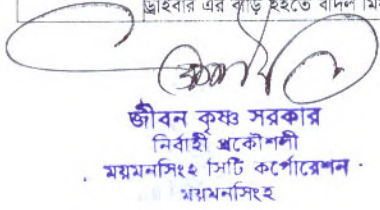 ড্রাইবার এর বাড়ি হইতে বাদল
জীবন কৃষ্ণ সরকার
নির্বাহী প্রকৌশলী
ময়মনসিংহ সিটি কর্পোরেশন
ময়মনসিংহ